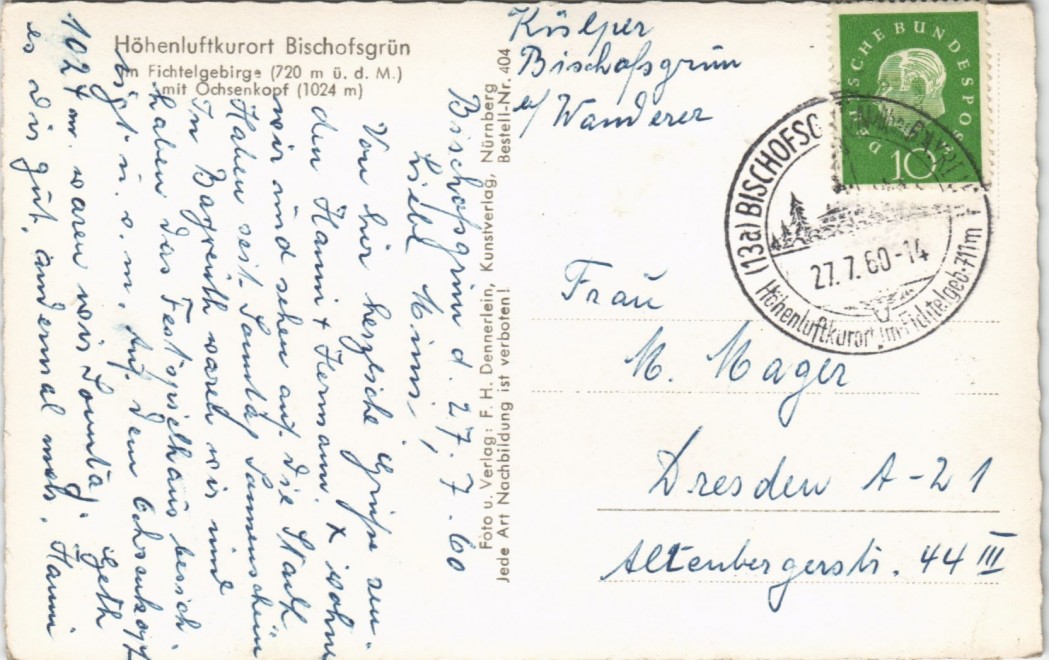 Höhenluftkurort Bischofsgrün
im Fichtelgebirge (720 m ü. d. M.)
mit Ochsenkopf (1024 m)
Bischofsgrün d. 27. 7. 60
Liebe Mimi,
Von hir herzliche Grüße sen-
den Hanni + Hermann. X wohnen
wir und sehen auf die Stadt
Haben seit Samstag Sonnenschein
In Bayreuth waren wir und
haben das Festspielhaus besich-
tigt u. s. m. Auf dem Ochsenkopf
1024 m. waren wir Sonntag. Geth
es dir gut, andermal mehr. Hanni
Foto u. Verlag: F. H. Dennerlein, Kunstverlag, Nürnberg
Jede Art Nachbildung ist verboten! Bestell-Nr. 404
Külper
Bischofsgrün
b/ Wanderer
DEUTSCHE BUNDESPOST
10
(13a) BISCHOFSG
27.7.60-14
Höhenluftkurort im Fichtelgeb. 711m
Frau
M. Mager
Dresden A-21
Altenbergerstr. 44 III